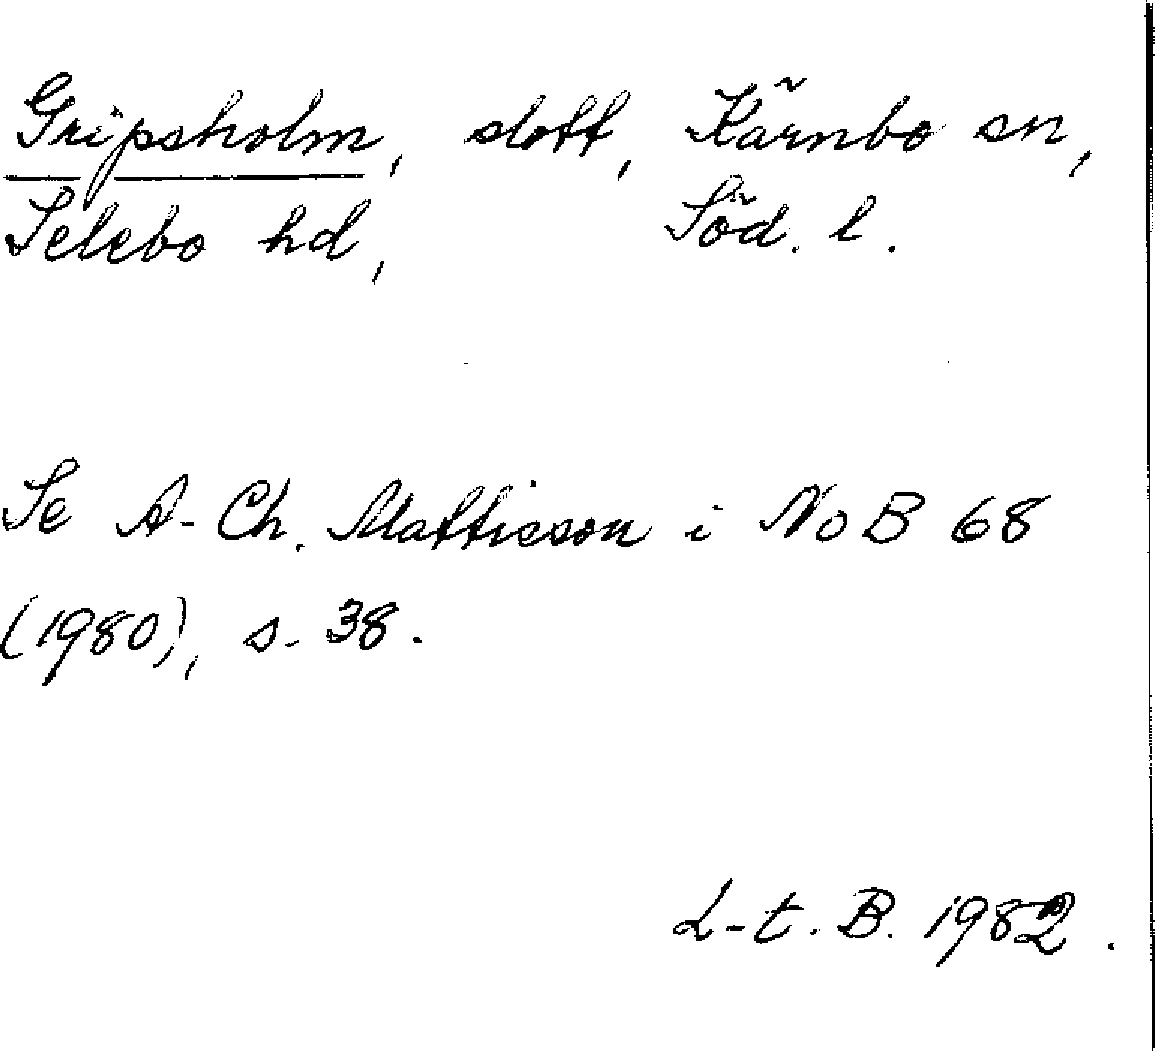 Gripsholm, slott, Kärnbo sn,
Selebo hd, Söd. l.
Se A-Ch. Mattisson i NoB 68
(1980), s. 38.
L-t. B. 1982.